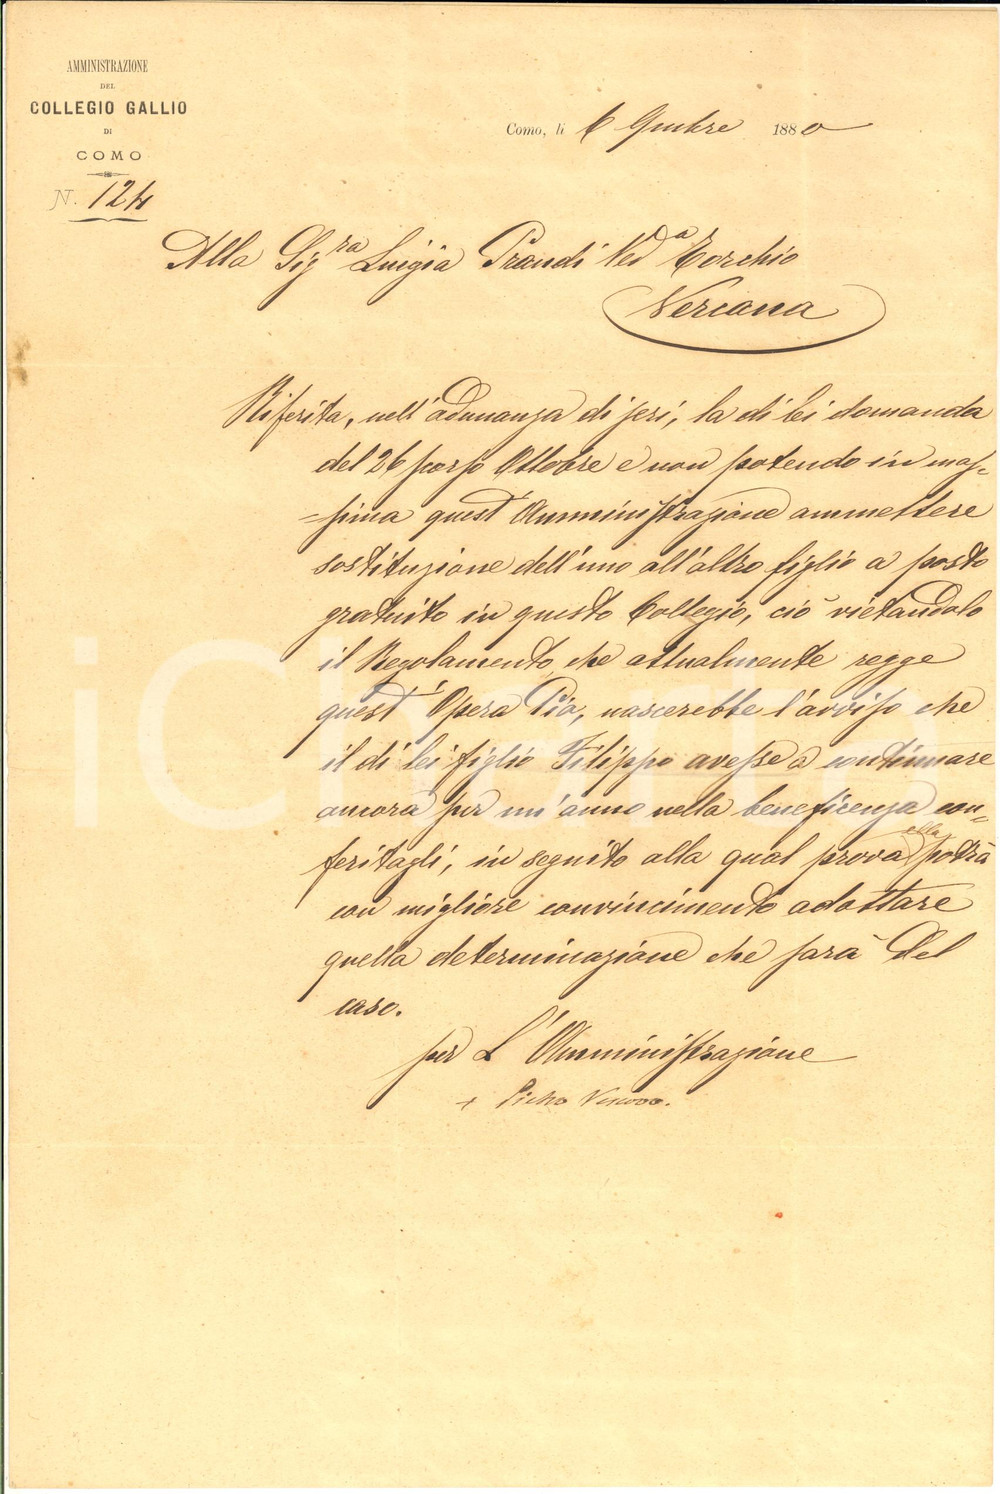 AMMINISTRAZIONE
DEL
COLLEGIO GALLIO
DI
COMO
N. 124
Como, li 6 1880
Alla Sig.ra Luigia Prandi Ved.a Torchio
Vercana
Riferita, nell'adunanza di jeri, la di lei domanda
del 26 scorso Ottobre e non potendo in mas-
=sima quest'Amministrazione ammettere
sostituzione dell'uno all'altro figlio a posto
gratuito in questo Collegio, ciò vietandolo
il Regolamento che attualmente regge
quest'Opera Pia, nascerebbe l'avviso che
il di lei figlio Filippo avesse a continuare
ancora per un'anno nella beneficenza con-
feritagli, in seguito alla qual prova ella potrà
con migliore convincimento adottare
quella determinazione che sarà del
caso.
per L'Amministrazione
+ Pietro Vescovo.
iCharta